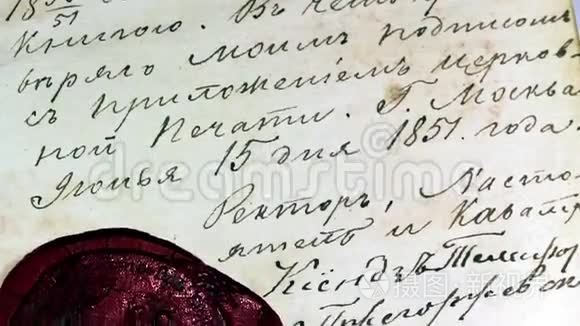 1850/51
Книгою. Въ чемъ у
вѣряю моимъ подписомъ
съ приложеніемъ церков-
ной Печати. Г. Москва
Іюнья 15 дня 1851. года.
Ректоръ, Насто-
ятель и Кавал
Ксіондзъ
dreamstime
新视界